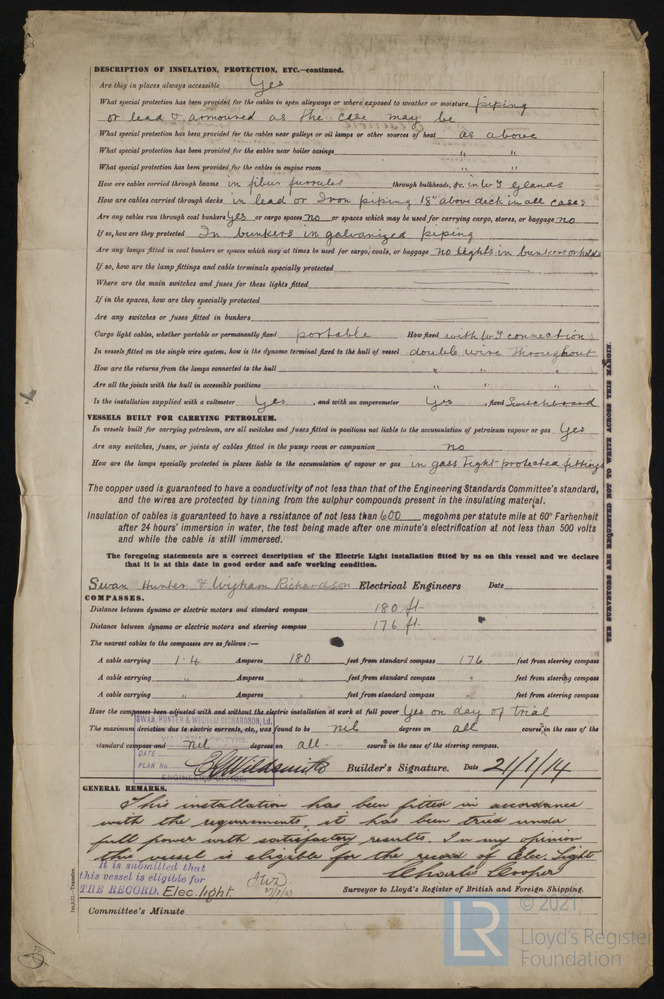 DESCRIPTION OF INSULATION, PROTECTION, ETC.—continued.
Are they in places always accessible Yes
What special protection has been provided for the cables in open alleyways or where exposed to weather or moisture piping
or lead & armoured as the case may be
What special protection has been provided for the cables near galleys or oil lamps or other sources of heat as above
What special protection has been provided for the cables near boiler casings " "
What special protection has been provided for the cables in engine room " "
How are cables carried through beams in fibre furrules through bulkheads, &c. in W T glands
How are cables carried through decks in lead or Iron piping 18" above deck in all cases
Are any cables run through coal bunkers Yes or cargo spaces no or spaces which may be used for carrying cargo, stores, or baggage no
If so, how are they protected In bunkers in galvanized piping
Are any lamps fitted in coal bunkers or spaces which may at times be used for cargo, coals, or baggage no lights in bunkers or holds
If so, how are the lamp fittings and cable terminals specially protected
Where are the main switches and fuses for these lights fitted
If in the spaces, how are they specially protected
Are any switches or fuses fitted in bunkers
Cargo light cables, whether portable or permanently fixed portable How fixed with W T connections
In vessels fitted on the single wire system, how is the dynamo terminal fixed to the hull of vessel double wire throughout
How are the returns from the lamps connected to the hull " " "
Are all the joints with the hull in accessible positions " " "
Is the installation supplied with a voltmeter Yes , and with an amperemeter Yes , fixed Switchboard
VESSELS BUILT FOR CARRYING PETROLEUM.
In vessels built for carrying petroleum, are all switches and fuses fitted in positions not liable to the accumulation of petroleum vapour or gas Yes
Are any switches, fuses, or joints of cables fitted in the pump room or companion no
How are the lamps specially protected in places liable to the accumulation of vapour or gas in gass tight protected fittings
The copper used is guaranteed to have a conductivity of not less than that of the Engineering Standards Committee's standard,
and the wires are protected by tinning from the sulphur compounds present in the insulating material.
Insulation of cables is guaranteed to have a resistance of not less than 600 megohms per statute mile at 60° Farhenheit
after 24 hours' immersion in water, the test being made after one minute's electrification at not less than 500 volts
and while the cable is still immersed.
The foregoing statements are a correct description of the Electric Light installation fitted by us on this vessel and we declare
that it is at this date in good order and safe working condition.
Swan Hunter & Wigham Richardson Electrical Engineers Date
COMPASSES.
Distance between dynamo or electric motors and standard compass 180 ft.
Distance between dynamo or electric motors and steering compass 176 ft.
The nearest cables to the compasses are as follows :—
A cable carrying 1.4 Amperes 180 feet from standard compass 176 feet from steering compass
A cable carrying " Amperes " feet from standard compass " feet from steering compass
A cable carrying " Amperes " feet from standard compass " feet from steering compass
Have the compasses been adjusted with and without the electric installation at work at full power Yes on day of trial
SWAN, HUNTER & WIGHAM RICHARDSON, Ld.
The maximum deviation due to electric currents, etc., was found to be nil degrees on all course in the case of the
standard compass and nil degrees on all course in the case of the steering compass.
DATE
PLAN No.
ENGINEERS OFFICE.
Builder's Signature. Date 21/1/14
GENERAL REMARKS.
This installation has been fitted in accordance
with the requirements, it has been tried under
full power with satisfactory results. In my opinion
this vessel is eligible for the record of Elec. Light
It is submitted that
this vessel is eligible for
THE RECORD. Elec. light.
Charles Cooper
Surveyor to Lloyd's Register of British and Foreign Shipping.
Committee's Minute
THE SURVEYORS ARE REQUESTED NOT TO WRITE ACROSS THIS MARGIN.
LR
© 2021
Lloyd's Register
Foundation